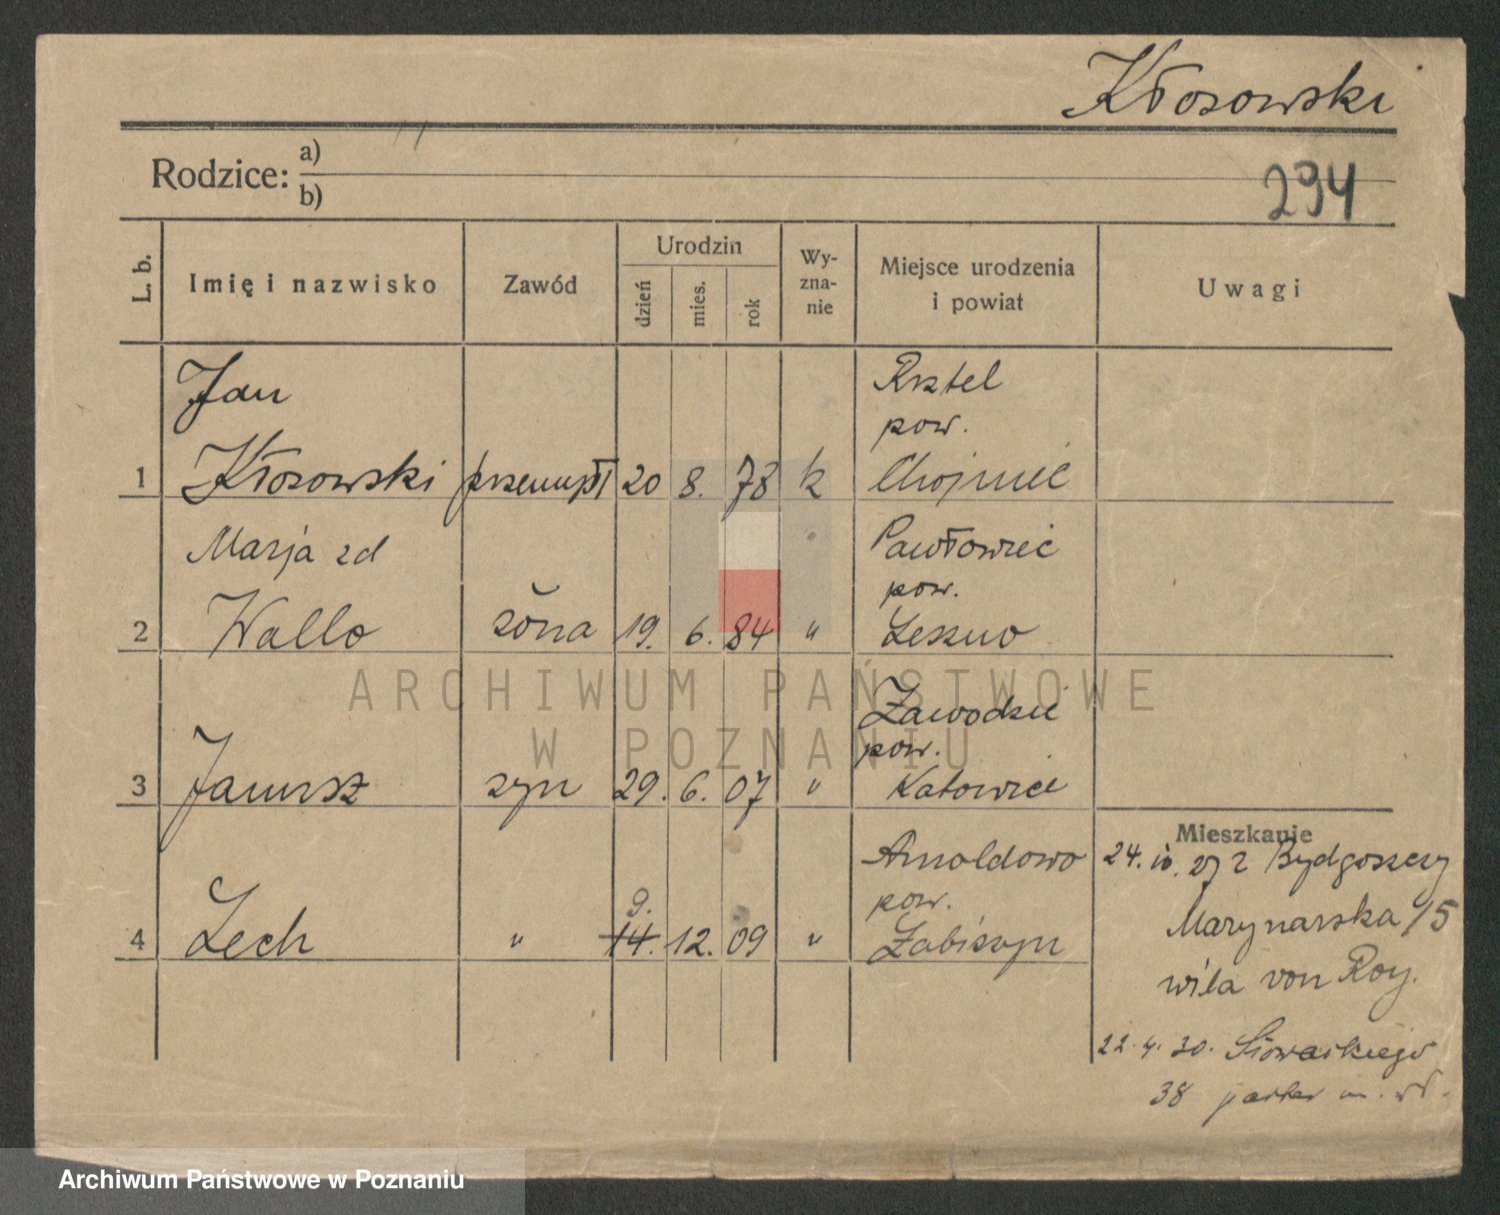 Kłosowski
Rodzice: a)
b)
294
L. b. Imię i nazwisko Zawód Urodzin dzień mies. rok Wy-zna-nie Miejsce urodzenia i powiat Uwagi
Jan Rsztel
pow.
1 Kłosowski przemysł 20 8. 78 k Chojnice
Marja zd Pawłowice
pow.
2 Wallo żona 19. 6. 84 " Leszno
Zawodzie
pow.
3 Janusz syn 29. 6. 07 " Katowice
Mieszkanie
Arnoldowo 24. 10. 27 z Bydgoszczy
9. pow. Marynarska /5
4 Lech " 14. 12. 09 " Łabiszyn
wila von Roy.
22. 4. 30. Słowackiego
38 parter m. wł.
ARCHIWUM PAŃSTWOWE
W POZNANIU
Archiwum Państwowe w Poznaniu